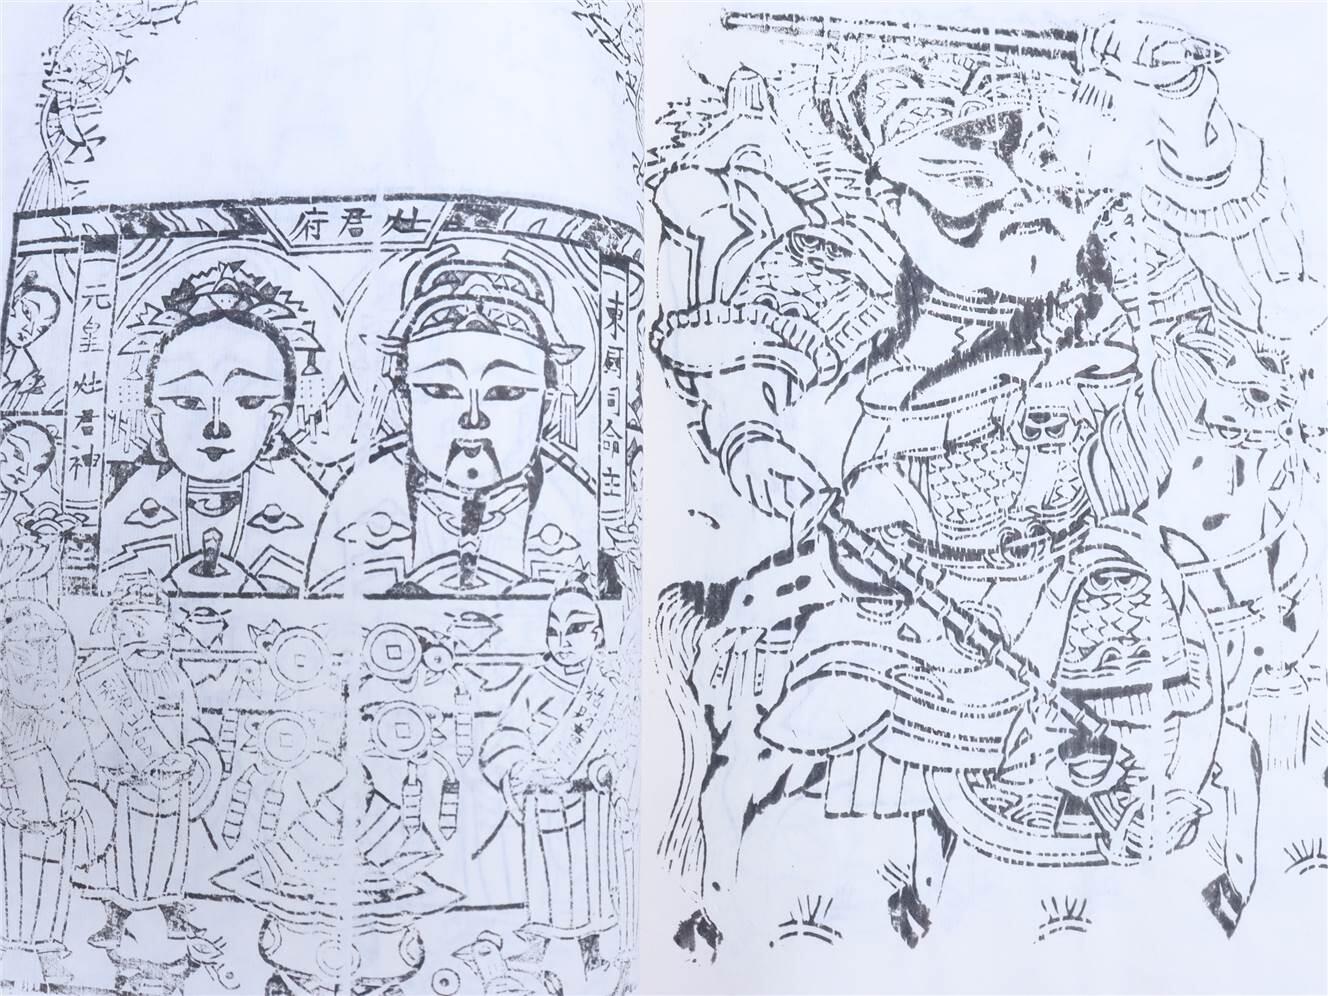 灶君府
東厨司命主
元皇灶君神